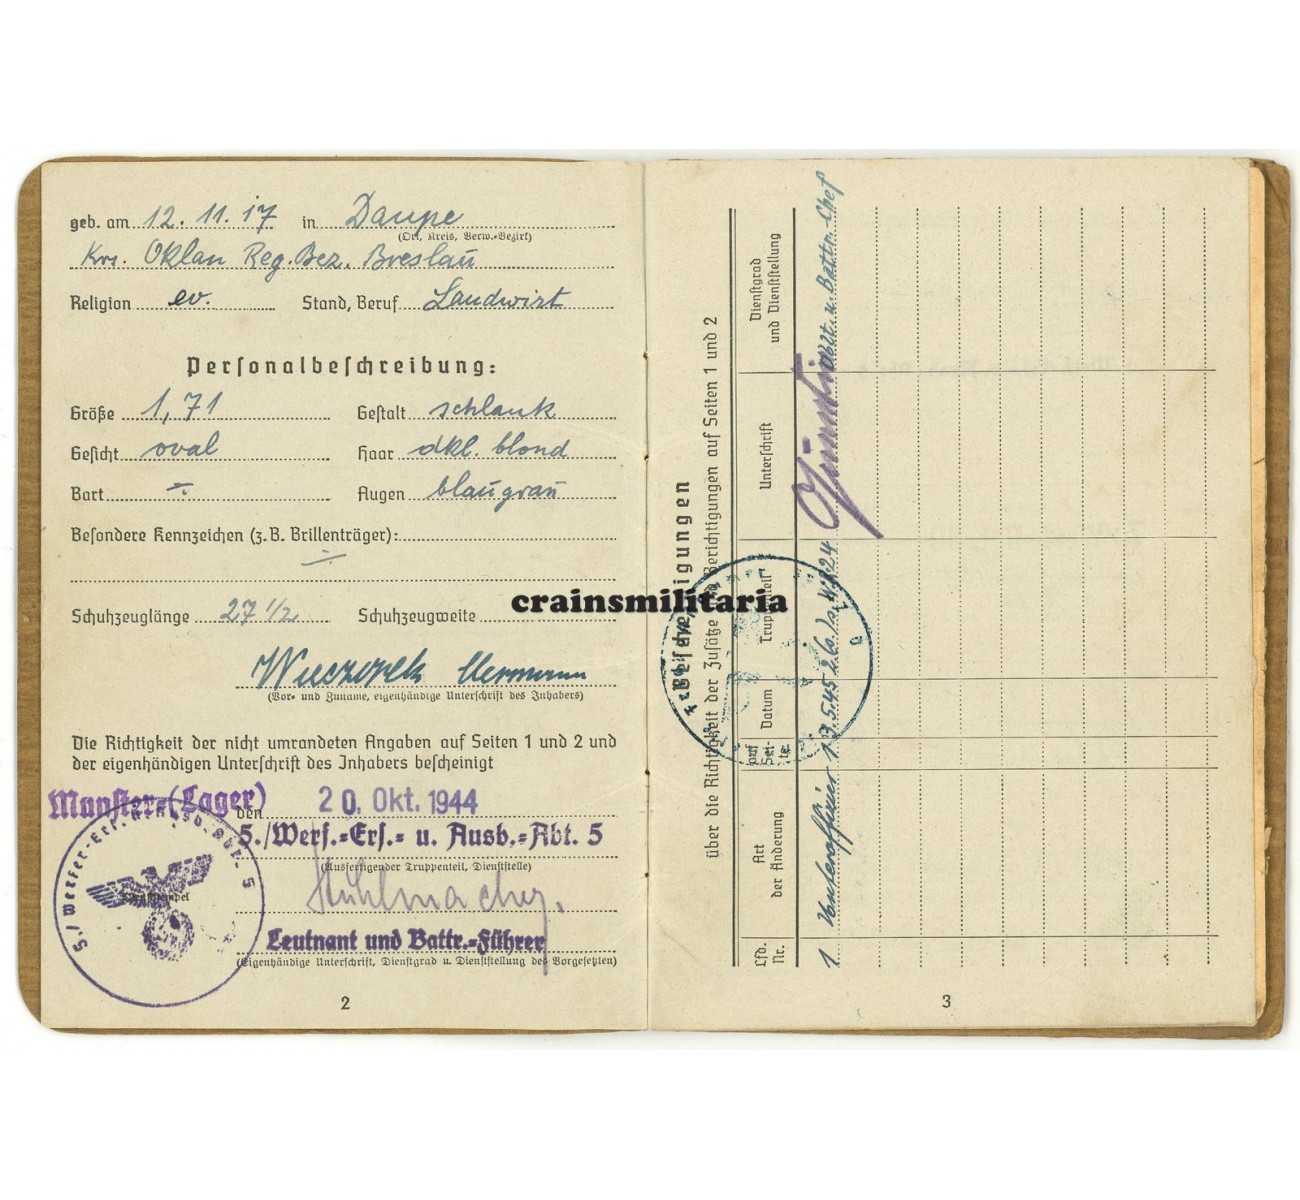 geb. am 12. 11. 17 in Daupe
(Ort, Kreis, Verw.-Bezirk)
Krs. Ohlau Reg. Bez. Breslau
Religion ev. Stand, Beruf Landwirt
Personalbeschreibung:
Größe 1,71 Gestalt schlank
Gesicht oval Haar dkl. blond
Bart -- Augen blaugrau
Besondere Kennzeichen (z. B. Brillenträger):
--
Schuhzeuglänge 27 1/2 Schuhzeugweite
Wieczorek Hermann
(Vor- und Zuname, eigenhändige Unterschrift des Inhabers)
Die Richtigkeit der nicht umrandeten Angaben auf Seiten 1 und 2 und
der eigenhändigen Unterschrift des Inhabers bescheinigt
Munster-(Lager) den 20. Okt. 1944
5./Werf.-Ers.- u. Ausb.-Abt. 5
(Ausfertigender Truppenteil, Dienststelle)
5./Werfer-Ers.- u. Ausb.-Abt. 5
Dienststempel
Leutnant und Battr.-Führer
(Eigenhändige Unterschrift, Dienstgrad u. Dienststellung des Vorgesetzten)
2
crainsmilitaria
Bescheinigungen
über die Richtigkeit der Zusätze und Berichtigungen auf Seiten 1 und 2
Lfd. Nr.
Art der Änderung
auf Seite
Datum
Truppenteil
Unterschrift
Dienstgrad und Dienststellung
1 Unteroffizier 1 3.5.45 u. Battr. Chef
3